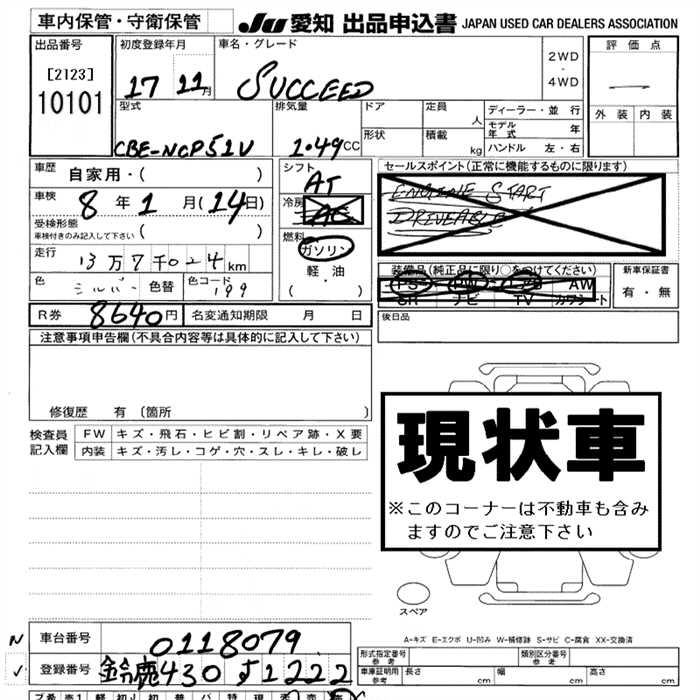 車内保管・守衛保管
JU 愛知 出品申込書 JAPAN USED CAR DEALERS ASSOCIATION
出品番号
[2123]
10101
初度登録年月
17 11月
車名・グレード
SUCCEED
2WD
・
4WD
評価点
—
外装 内装
型式
CBE-NCP51V
排気量
1.49CC
ドア
形状
定員 人
積載 kg
ディーラー・並行
モデル年式 年
ハンドル 左・右
車歴 自家用・( )
車検 8年1月(14日)
受検形態
車検付きのみ記入して下さい ( )
走行 13万7千024km
色 シルバー 色替 色コード 199
シフト
AT
冷房
AC
燃料
ガソリン
軽・油
( ・ )
セールスポイント(正常に機能するものに限ります)
ENGINE START
DRIVEABLE
装備品(純正品に限り○をつけてください)
PS・PW・エアB AW
SR ナビ TV カワシート
新車保証書
有・無
R券 8640円 名変通知期限 月 日
後日品
注意事項申告欄(不具合内容等は具体的に記入して下さい)
修復歴 有 〔箇所 〕
検査員記入欄
FW キズ・飛石・ヒビ割・リペア跡・X要
内装 キズ・汚レ・コゲ・穴・スレ・キレ・破レ
現状車
※このコーナーは不動車も含み
ますのでご注意下さい
スペア
A-キズ E-エクボ U-凹み W-補修跡 S-サビ C-腐食 XX-交換済
N 車台番号 0118079
✓ 登録番号 鈴鹿430す1222
形式指定番号
参考
類別区分番号
参考
車庫証明用
参考
長さ cm 幅 cm 高さ cm